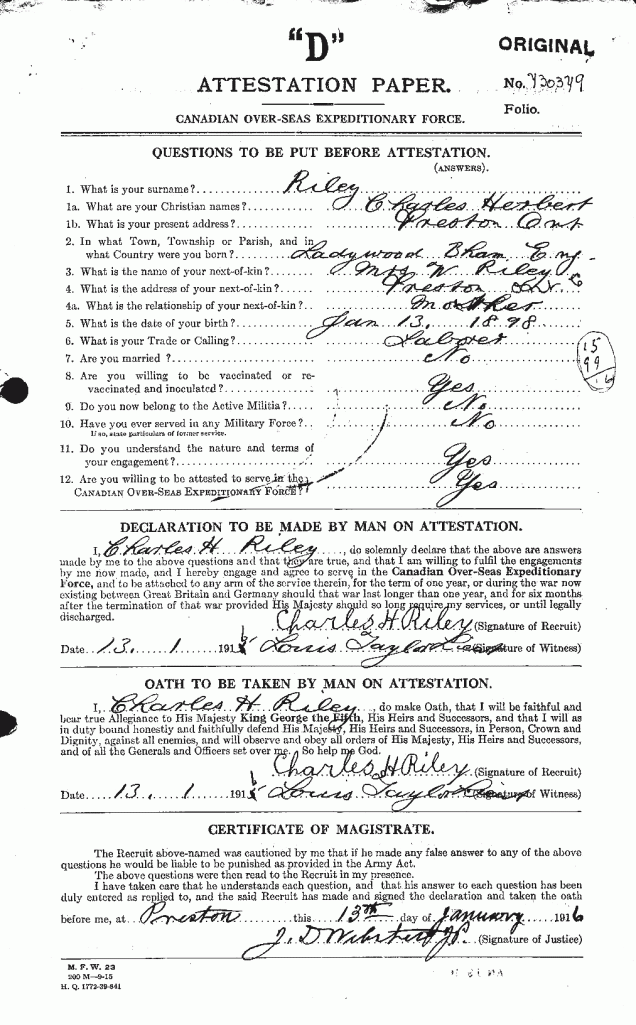 "D"
ORIGINAL
ATTESTATION PAPER.
No.
Folio.
CANADIAN OVER-SEAS EXPEDITIONARY FORCE.
QUESTIONS TO BE PUT BEFORE ATTESTATION.
(ANSWERS).
1. What is your surname? Riley
1a. What are your Christian names? Charles Herbert
1b. What is your present address? Preston Ont
2. In what Town, Township or Parish, and in
what Country were you born? Ladywood Bham Eng
3. What is the name of your next-of-kin? Mrs W. Riley
4. What is the address of your next-of-kin? Preston Ont.
4a. What is the relationship of your next-of-kin? Mother
5. What is the date of your birth? Jan 13. 1898
6. What is your Trade or Calling? Laborer
7. Are you married? No
15
99
16
8. Are you willing to be vaccinated or re-
vaccinated and inoculated? Yes
9. Do you now belong to the Active Militia? No.
10. Have you ever served in any Military Force? No
If so, state particulars of former service.
11. Do you understand the nature and terms of
your engagement? Yes
12. Are you willing to be attested to serve in the
CANADIAN OVER-SEAS EXPEDITIONARY FORCE? Yes
DECLARATION TO BE MADE BY MAN ON ATTESTATION.
I, Charles H Riley, do solemnly declare that the above are answers
made by me to the above questions and that they are true, and that I am willing to fulfil the engagements
by me now made, and I hereby engage and agree to serve in the Canadian Over-Seas Expeditionary
Force, and to be attached to any arm of the service therein, for the term of one year, or during the war now
existing between Great Britain and Germany should that war last longer than one year, and for six months
after the termination of that war provided His Majesty should so long require my services, or until legally
discharged.
Charles H Riley (Signature of Recruit)
Date 13. 1 1916 Louis Taylor (Signature of Witness)
OATH TO BE TAKEN BY MAN ON ATTESTATION.
I, Charles H Riley, do make Oath, that I will be faithful and
bear true Allegiance to His Majesty King George the Fifth, His Heirs and Successors, and that I will as
in duty bound honestly and faithfully defend His Majesty, His Heirs and Successors, in Person, Crown and
Dignity, against all enemies, and will observe and obey all orders of His Majesty, His Heirs and Successors,
and of all the Generals and Officers set over me. So help me God.
Charles H Riley (Signature of Recruit)
Date 13. 1 1916 Louis Taylor (Signature of Witness)
CERTIFICATE OF MAGISTRATE.
The Recruit above-named was cautioned by me that if he made any false answer to any of the above
questions he would be liable to be punished as provided in the Army Act.
The above questions were then read to the Recruit in my presence.
I have taken care that he understands each question, and that his answer to each question has been
duly entered as replied to, and the said Recruit has made and signed the declaration and taken the oath
before me, at Preston this 13th day of January 1916
J. D. Webster J.P. (Signature of Justice)
M. F. W. 23
200 M—9-15
H. Q. 1772-39-841